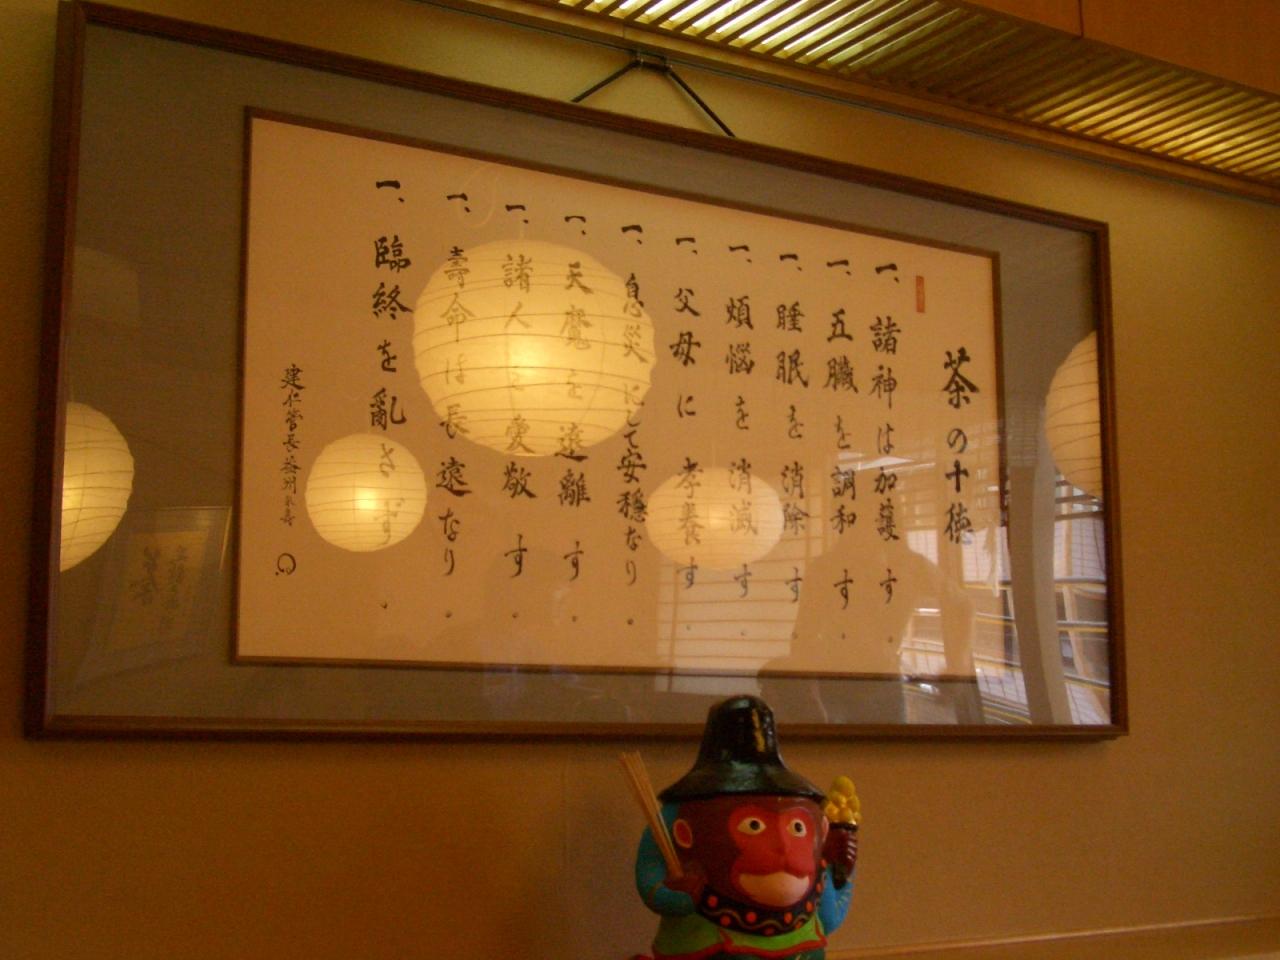 茶の十徳
一、諸神は加護す。
一、五臓を調和す。
一、睡眠を消除す。
一、煩悩を消滅す。
一、父母に孝養す。
一、息災にして安穏なり。
一、天魔を遠離す。
一、諸人を愛敬す。
一、壽命は長遠なり。
一、臨終を亂さず。
建仁管長益州